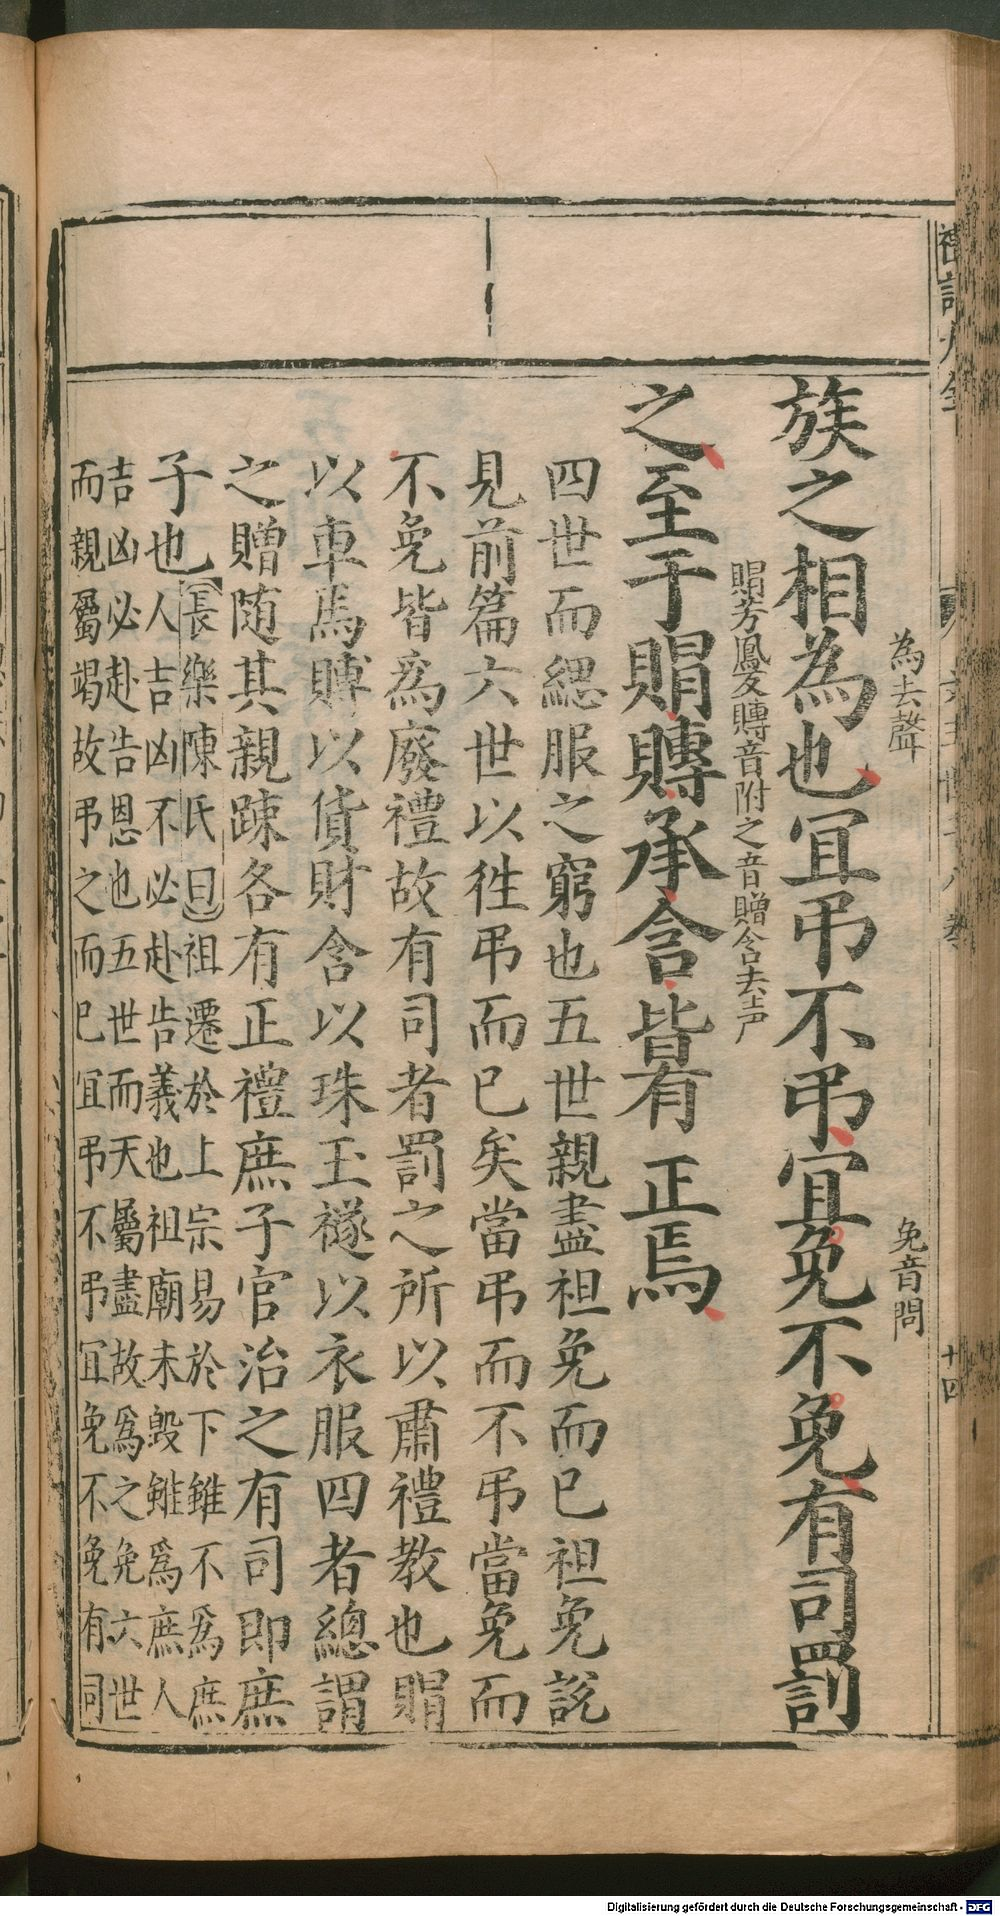 為去聲　免音問
族之相為也宜弔不弔宜免不免有司罰
賵芳鳳反賻音附之音贈含去声
之至于賵賻承含皆有正焉
四世而緦服之窮也五世親盡袒免而已袒免説
見前篇六世以徃弔而已矣當弔而不弔當免而
不免皆為廢禮故有司者罰之所以肅禮教也賵
以車馬賻以貨財含以珠玉襚以衣服四者總謂
之贈随其親踈各有正禮庶子官治之有司即庶
子也
長樂陳氏曰祖遷於上宗易於下雖不為庶
人吉凶不必赴告義也祖廟未毀雖為庶人
吉凶必赴告恩也五世而天屬盡故為之免六世
而親屬竭故弔之而已宜弔不弔宜免不免有司
十四
Digitalisierung gefördert durch die Deutsche Forschungsgemeinschaft - DFG